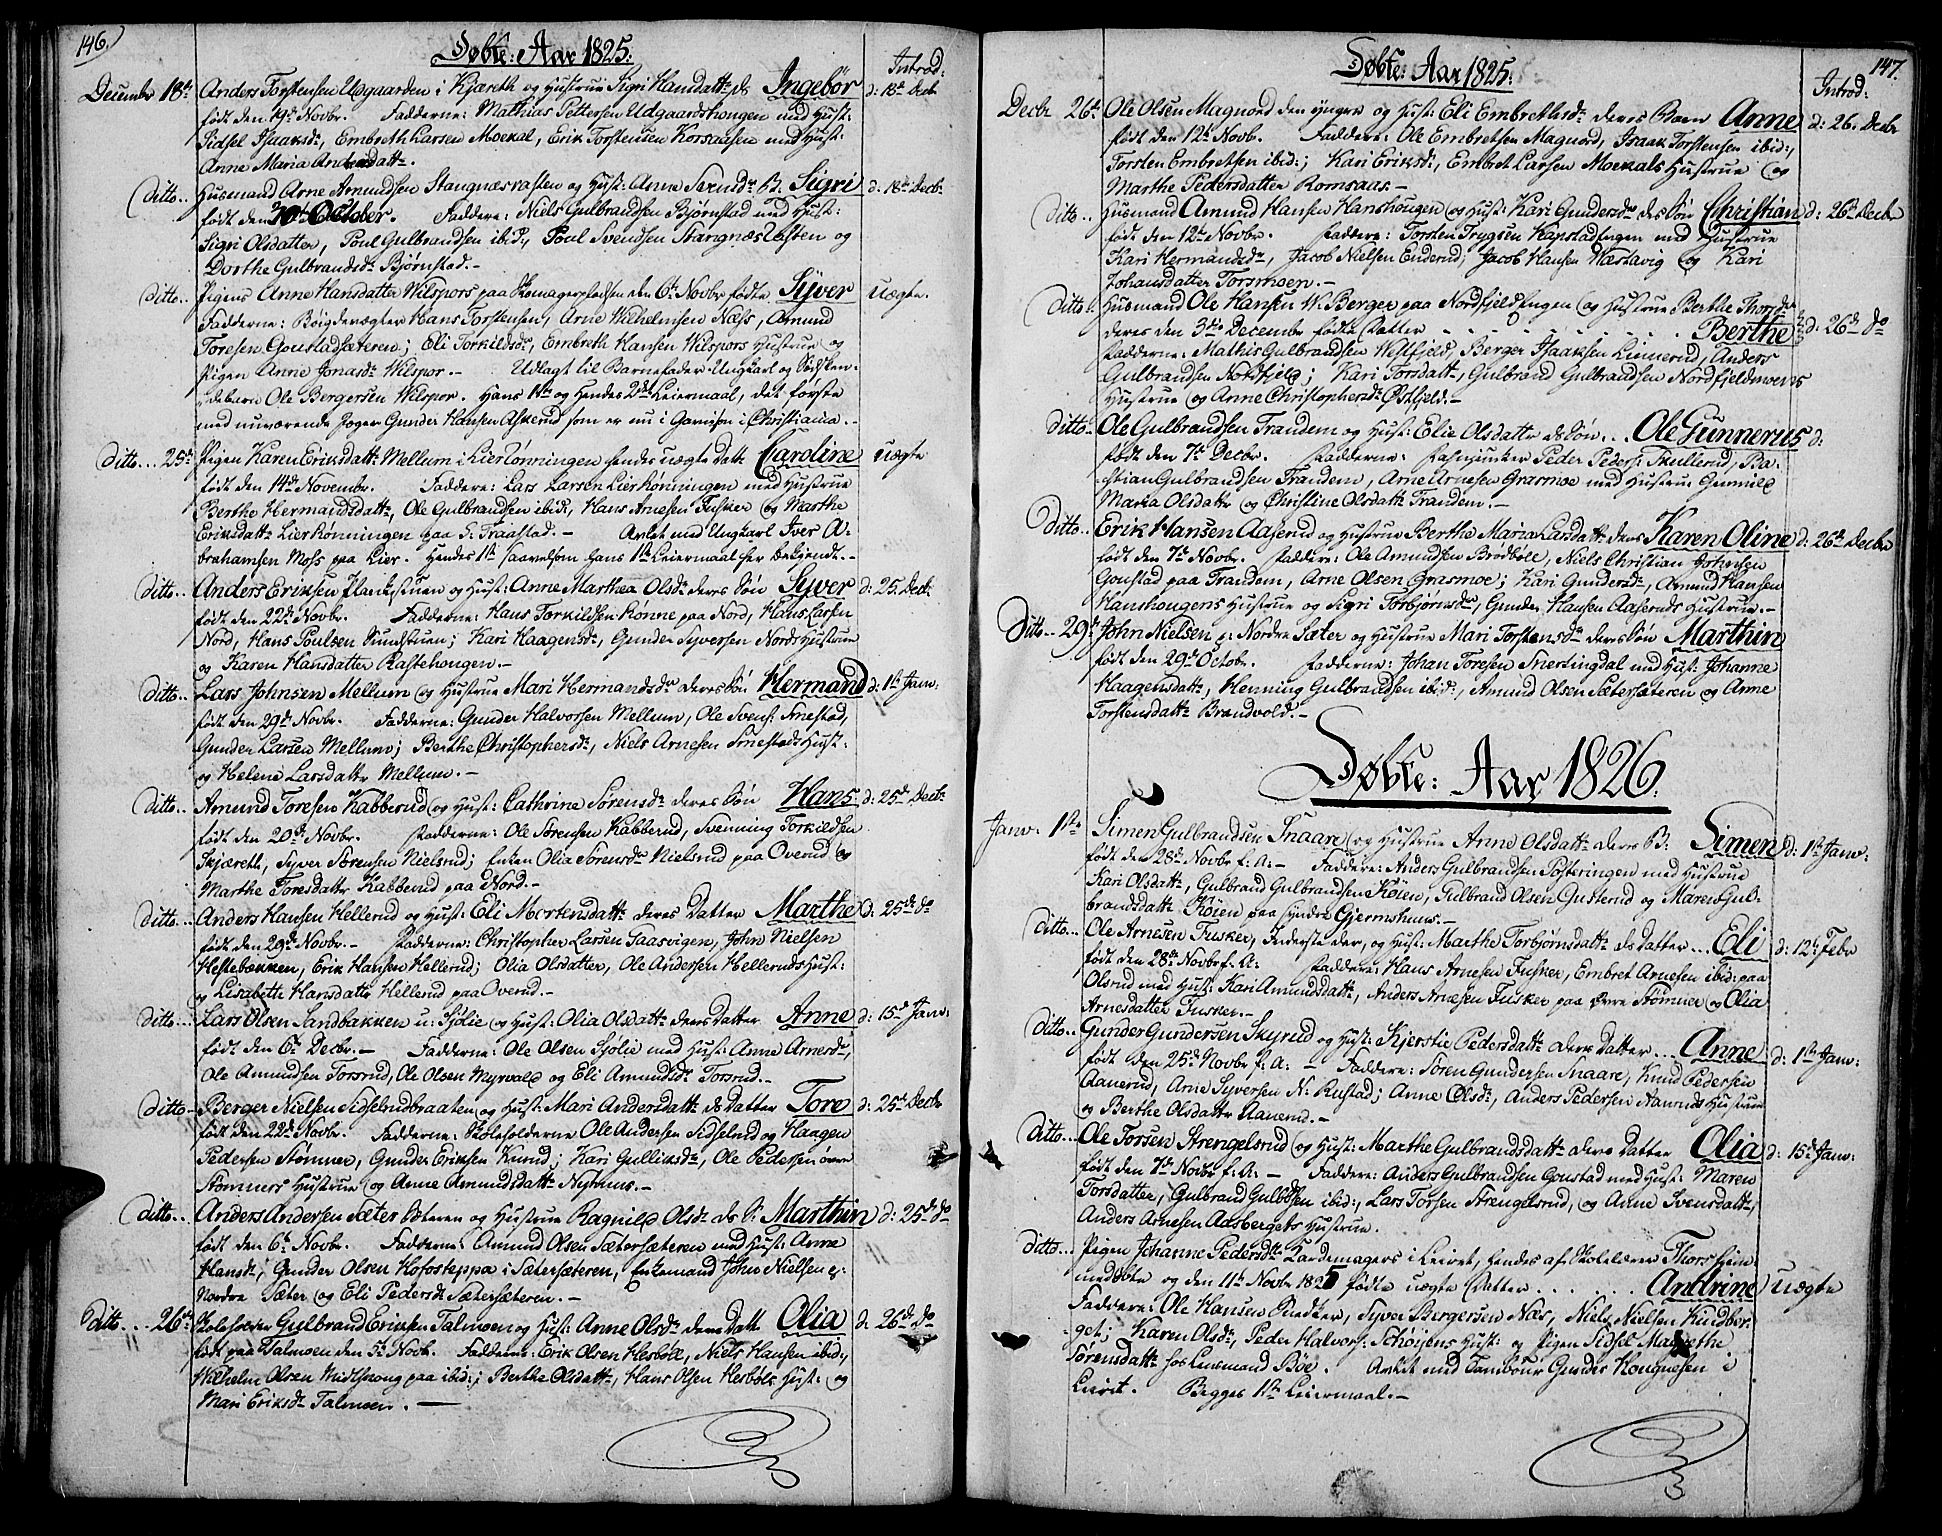 146.)
Døbte: Aar 1825.
Introd:
Decembr 18de Anders Torstensen Udgaarden i Kjæreth og Hustrue Sigri Hansdattr ds Ingebör d: 18de Decbr
født den 19de Novbr. Fadderne: Mathias Pettersen Udgaardshougen med Hust:
Sidsel Isaaksdr, Embreth Larsen Moekal, Erik Torstensen Korsaasen med Hust:
Anne Maria Andersdattr.
Ditto.. Huusmand Arne Amundsen Stangnæsrasten og Hust: Anne Svendsdr B. Sigri d. 18de Decbr
født den October. Faddere: Niels Gulbrandsen Bjørnstad med Hust:
Sigri Olsdatter, Poul Gulbrandsen ibid:, Poul Svendsen Stangnæsrasten og
Dorthe Gulbrandsdr Bjørnstad.-
Ditto.. Pigen Anne Hansdatter Wilspors paa Skomagerpladsen den 6te Novbr fødte Syver Uægte.
Fadderne: Bøigderægter Hans Torstensen, Arne Wilhelmsen Næss, Amund
Toresen Goustadsæteren; Eli Torkildsdr, Embreth Hansen Wilspors Hustrue og
Pigen Anne Jonasdr Wilspor.- Udlagt til Barnefader Ungkarl og Sødsken-
debarn Ole Bergersen Wilspor. Hans 1ste og Hendes 2det Leiermaal, det første
med nuværende Jæger Gunder Hansen Askerud som er nu i Garnison i Christiania.-
Ditto... 25de Pigen Karen Eriksdattr Mellum i Lier Rønningen hendes uægte Dattr Caroline Uægte
født den 14de Novembr. Faddere: Lars Larsen Lierrønningen med Hustrue
Berthe Hermandsdattr, Ole Gulbrandsen ibid:, Hans Arnesen Fusker og Marthe
Eriksdattr Lierrønningen paa S: Fraastad.- Avlet med Ungkarl Iver A-
brahamsen Moss paa Lier. Hendes 1ste saavelsom hans 1ste Leiermaal her bekjendt.-
Ditto.. Anders Eriksen Plankestuen og Hust: Anne Marthea Olsdr deres Søn Syver d: 25. Decbr.
født den 22de Novbr. Fadderne: Hans Torkildsen Rønne paa Nord, Hans Larsen
Nord, Hans Poulsen Nundstuen; Kari Haagensdr, Gunder Syversen Nords Hustrue
og Karen Hansdatter Rastehougen.-
Ditto.. Lars Johnsen Mellum og Hustrue Mari Hermandsdr deres Søn Hermand d: 1ste Janv:
født den 29de Novbr. Fadderne: Gunder Halvorsen Mellum, Ole Svens: Smestad,
Gunder Larsen Mellum; Berthe Christophersdr, Niels Arnesen Smestads Hust:
og Helene Larsdattr Mellum.-
Ditto.. Amund Toresen Kabberud og Hust: Cathrine Sørensdr deres Søn Hans d: 25de Decbr.
født den 20de Novbr. Fadderne: Ole Sørensen Kabberud, Svenning Torkildsen
Skjæreth, Syver Sørensen Nielsrud; Enken Olia Sørensdr Nielsrud paa Overud og
Marthe Toresdattr Kabberud paa Nord.-
Ditto... Anders Hansen Hellerud og Hust: Eli Mortensdattr deres Datter Marthe d: 25de do
født den 29de Novbr.- Fadderne: Christopher Larsen Taasvigen, John Nielsen
Hestebækken, Erik Hansen Hellerud; Olia Olsdatter, Ole Andersen Helleruds Hust:
og Lisabethe Hansdattr Hellerud paa Overud.-
Ditto... Lars Olsen Sandbakken u: Sjølie og Hust: Olia Olsdattr deres Datter Anne d: 15de Janv:
født den 6te Decbr.- Fadderne: Ole Olsen Sjølie med Hust: Anne Arnesdr,
Ole Amundsen Torsrud, Ole Olsen Myrvold og Eli Amundsdr Torsrud.-
Ditto- Berger Nielsen Sidselrudbraaten og Hust: Mari Andersdattr ds Datter Tore d: 25de Decbr
født den 22de Novbr. Fadderne: Skoleholderne Ole Andersen Sidselrud og Haagen
Pedersen Stømner, Gunder Eriksen Kurud; Kari Gulliksdr, Ole Pedersen øvre
Stømners Hustrue og Anne Amundsdattr Nyhuus.-
Ditto... Anders Andersen Sæter Sæteren og Hustrue Ragnild Olsdr ds S: Marthin d: 25de do
født den 6te Novbr. Fadderne: Amund Olsen Sætersæteren med Hust: Anne
Hansdr, Gunder Olsen Hofosteppa i Sætersæteren, Enkemand John Nielsen
Nordre Sæter og Eli Pedersdr Sætersæteren.-
Ditto... 26de Skoleholder Gulbrand Eriksen Talmoen og Hust: Anne Olsdr deres Dattr Olia d: 26de do
født paa Talmoen den 5te Novb. Fadderne: Erik Olsen Hesbøl, Niels Hansen ibid:,
Wilhelm Olsen Midthroug paa ibid:; Berthe Olsdattr, Hans Olsen Hesbøls Hust: og
Mari Eriksdr Talmoen.-
Døbte: Aar 1825.
147.
Introd:
Decbr 26de Ole Olsen Magnord den yngre og Hust: Eli Embrethsdr deres Barn Anne d: 26. Decbr
født den 12te Novbr. Faddere: Ole Embrethsen Magnord, Isaak Torstensen ibid:,
Torsten Embretsen ibid:; Kari Eriksdr, Embret Larsen Moekals Hustrue og
Marthe Pedersdatter Romsaas.-
Ditto.. Husmand Amund Hansen Hanshougen og Hust: Kari Gundersdr des Søn Christian d: 26de Decbr
født den 12te Novbr. Faddere: Torsten Trygsen Kapstadengen med Hustrue
Kari Hermandsdr, Jacob Nielsen Enderud; Jacob Hansen Næstavig og Kari
Johansdatter Torsmoen.-
Ditto. Husmand Ole Hansen W. Berger paa Nordfjeldengen og Hustrue Berthe Thorsdr
deres den 3die Decembr fødte Datter . . . . . Berthe d: 26de do
Fadderne: Mathis Gulbrandsen Westfjeld, Berger Isaaksen Linnerud, Anders
Gulbrandsen Nordfjeld; Kari Torsdatt, Gulbrand Gulbrandsen Nordfjeldmoens
Hustrue og Anne Christophersdr Østfjeld.-
Ditto. Ole Gulbrandsen Trandem og Hust: Elie Olsdattr ds Søn.. Ole Gunnerius d:
født den 7de Decbr. Fadderne: Fahnjunker Peder Peders: Skullerud, Ba-
stian Gulbrandsen Trandem, Arne Arnesen Grasmoe med Hustrue Gunnild
Maria Olsdattr og Christine Olsdattr Trandem.-
Ditto.. Erik Hansen Aaserud og Hustrue Berthe Maria Larsdattr deres Karen Oline d: 26de Decbr
født den 7de Novbr. Faddere: Ole Amundsen Brødbøle, Niels Christian Johnsen
Goustad paa Trandem, Arne Olsen Grasmoe; Kari Gundersdr, Amund Hansen
Hanshougens Hustrue og Sigri Torbjørnsdr, Gunder Hansen Aaseruds Hustrue.-
Ditto- 29de John Nielsen Nordre Sæter og Hustrue Mari Torstensdr deres Søn Marthin
født den 29de Octobr. Fadderne: Johan Toresen Snertingdal med Hust: Johanne
Haagensdattr, Henning Gulbrandsen ibid:, Amund Olsen Sætersæteren og Anne
Torstensdattr Brandvold.-
Døbte: Aar 1826.
Janv: 1ste Simen Gulbrandsen Snaare og Hustrue Anne Olsdattr deres B: Simen d: 1ste Janv:
født den 28de Novbr f: A:- Faddere: Anders Gulbrandsen Posteringen med Hustrue
Kari Olsdattr, Gulbrand Gulbrandsen Køien, Gulbrand Olsen Gusterud og Maren Gul-
brandsdattr Køien paa Syndre Gjermshuus.-
Ditto... Ole Arnesen Fusker, Inderste der, og Hust: Marthe Torbjørnsdattr ds Datter... Eli d: 12te Febr
født den 28de Novbr f: A: Faddere: Hans Arnesen Fusker, Embret Arnesen ibid: paa
Olsrud med Hust: Kari Amundsdattr, Anders Arnesen Fusker paa Øvre Stømner og Olia
Arnesdatter Fusker.-
Ditto.. Gunder Gundersen Skyrud og Hust: Kjerstie Pedersdattr deres Datter... Anne d: 1ste Janv:
født den 25de Novbr f: A: - Faddere: Søren Gundersen Snaare, Knud Pedersen
Aanerud, Arne Syversen N: Rustad; Anne Olsdr, Anders Pedersen Aaneruds Hustrue
og Berthe Olsdattr Aanerud.-
Ditto... Ole Torsen Strengelsrud og Hust: Marthe Gulbrandsdattr deres Datter Olia d: 15de Janv:
født den 7de Novbr f: A: - Faddere: Anders Gulbrandsen Goustad med Hust: Maren
Torsdatter, Gulbrand Gulbdsen ibid:, Lars Torsen Strengelsrud, og Anne Svensdattr,
Anders Arnesen Aasbergets Hustrue.
Ditto... Pigen Johanne Pedersdtr Kardemagers i Leiret, hendes af Skolelærer Thorshjem
meddøbte og den 11te Novbr 1825 fødte uægte Datter . . . . . Andrine Uægte
Faddere: Ole Hansen Rredker, Syver Bergersen Nær, Niels Nielsen Kundber-
get; Karen Olsdr, Peder Halvors: Schøiens Hust: og Pigen Sidsel Magrethe
Sørensdattr hos Lensmand Böe. Avlet med Tambour Gunder Kongnesen i
Leiret. Begges 1ste Leiermaal.-